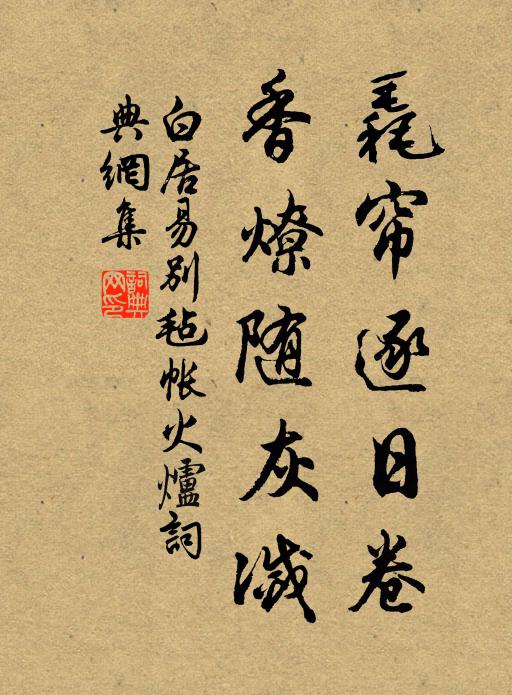 毳帘逐日卷
香燎随灰滅
白居易别毡帳火爐詞
典網集
詞典
网印